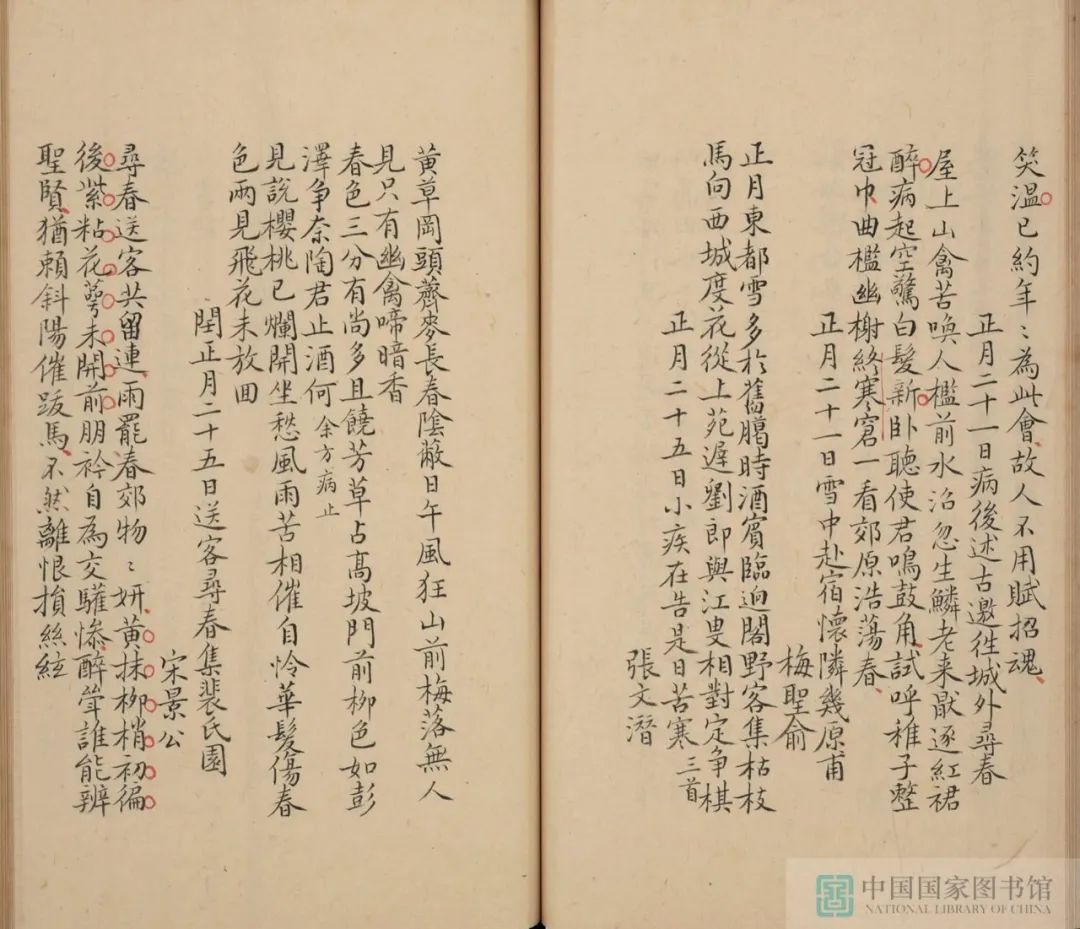 笑溫已約年〻為此會故人不用賦招魂
正月二十一日病後述古邀徃城外尋春
屋上山禽苦喚人檻前水沿忽生鱗老来厭逐紅裙
醉病起空驚白髮新卧聽使君鳴鼓角試呼稚子整
冠巾曲檻幽榭終寒窘一看郊原浩蕩春
正月二十一日雪中赴宿懷隣幾原甫
梅聖俞
正月東都雪多於舊臈時酒賓臨逈閣野客集枯枝
馬向西城度花從上苑遅劉郎與江叟相對定争棋
正月二十五日小疾在告是日苦寒三首
張文潛
黃草岡頭薺麥長春陰蔽日午風狂山前梅落無人
見只有幽禽啼暗香
春色三分有尚多且饒芳草占髙坡門前柳色如彭
澤争奈陶君止酒何余方病止
見說櫻桃已爛開坐愁風雨苦相催自怜華髮傷春
色兩見飛花未放囬
閏正月二十五日送客尋春集裴氏園
宋景公
尋春送客共留連雨罷春郊物〻妍黃抹柳梢初徧
後紫粘花萼未開前朋衿自為交驩慘醉耸誰能辨
聖賢猶頼斜陽催跋馬不然離恨損絲絃
中国国家图书馆
NATIONAL LIBRARY OF CHINA